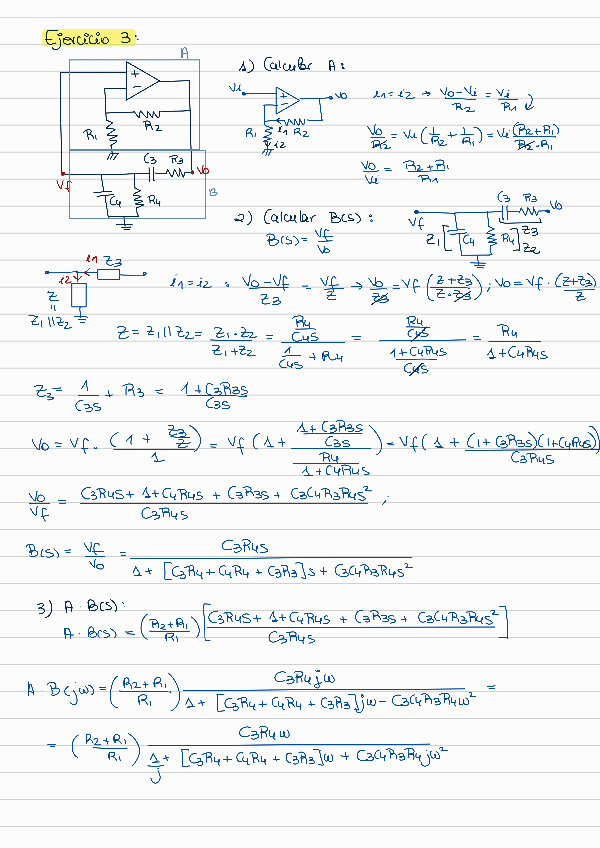 Ejercicio 3:
A
+
-
R2
R1
C3 R3
Vf
Vo
C4
R4
B
1) Calcular A:
Vi
+
-
Vo
R1
i1 R2
i2
i1 = i2 → (Vo-Vi)/R2 = Vi/R1
Vo/R2 = Vi (1/R2 + 1/R1) = Vi (R2+R1)/(R2·R1)
Vo/Vi = (R2+R1)/R1
2) Calcular B(s):
B(s) = Vf/Vo
Vf
C3 R3
Vo
Z1 [ C4
R4 ] Z3
Z2
i1 Z3
i2
Z
=
Z1||Z2
i1 = i2 : (Vo-Vf)/Z3 = Vf/Z → Vo/Z3 = Vf ((Z+Z3)/(Z·Z3)) ; Vo = Vf · (Z+Z3)/Z
Z = Z1||Z2 = (Z1·Z2)/(Z1+Z2) = (R4/C4S)/(1/C4S + R4) = (R4/C4S)/((1+C4R4S)/C4S) = R4/(1+C4R4S)
Z3 = 1/C3S + R3 = (1+C3R3S)/C3S
Vo = Vf · (1 + Z3/Z)/1 = Vf (1 + ((1+C3R3S)/C3S)/(R4/(1+C4R4S))) = Vf (1 + (1+C3R3S)(1+C4R4S)/C3R4S)
Vo/Vf = (C3R4S + 1 + C4R4S + C3R3S + C3C4R3R4S²)/C3R4S ;
B(s) = Vf/Vo = C3R4S/(1 + [C3R4 + C4R4 + C3R3]S + C3C4R3R4S²)
3) A · B(s):
A · B(s) = ((R2+R1)/R1) [(C3R4S + 1 + C4R4S + C3R3S + C3C4R3R4S²)/C3R4S]
A · B(jw) = ((R2+R1)/R1) C3R4jw/(1 + [C3R4 + C4R4 + C3R3]jw - C3C4R3R4w²) =
= ((R2+R1)/R1) C3R4w/(1/j + [C3R4 + C4R4 + C3R3]w + C3C4R3R4jw²)